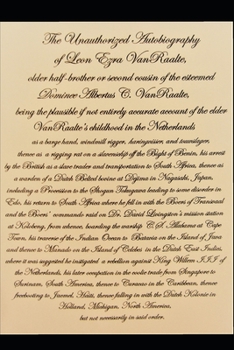 The Unauthorized Autobiography
of Leon Ezra VanRaalte,
older half-brother or second cousin of the esteemed
Dominee Albertus C. VanRaalte,
being the plausible if not entirely accurate account of the elder
VanRaalte's childhood in the Netherlands
as a barge hand, windmill rigger, haringvisser and townslyer,
thence as a rigging rat on a slavership off the Bight of Benin, his arrest
by the British as a slave trader and transportation to South Africa, thence as
a warden of a Dutch Belted bovine at Dejima in Nagasaki, Japan,
including a Procession to the Shogun Tokugawa leading to some disorder in
Edo, his return to South Africa where he fell in with the Boers of Transvaal
and the Boers' commando raid on Dr. David Livingston's mission station
at Kolobeng, from whence, boarding the warship C.S. Alabama at Cape
Town, his traverse of the Indian Ocean to Batavia on the Island of Java
and thence to Manado on the Island of Celebes in the Dutch East Indies,
where it was suggested he instigated a rebellion against King Willem III of
the Netherlands, his later occupation in the coolie trade from Singapore to
Surinam, South America, thence to Curacao in the Caribbean, thence
freebooting to Jacmel, Haiti, thence falling in with the Dutch Kolonie in
Holland, Michigan, North America,
but not necessarily in said order.